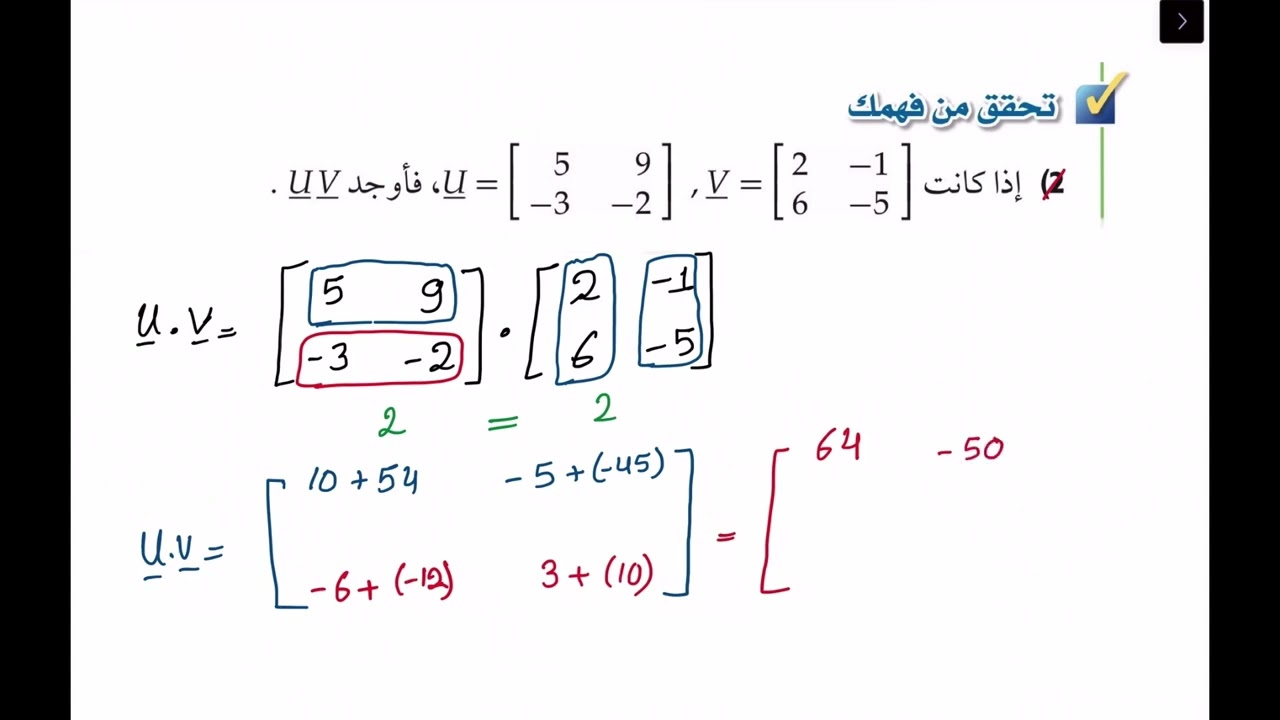 تحقق من فهمك
2) إذا كانت U = [5 9 -3 -2] , V = [2 -1 6 -5]، فأوجد UV .
u . v = [5 9 -3 -2] . [2 -1 6 -5]
2 = 2
u.v = [10 + 54 - 5 + (-45) - 6 + (-12) 3 + (10)] = [64 - 50